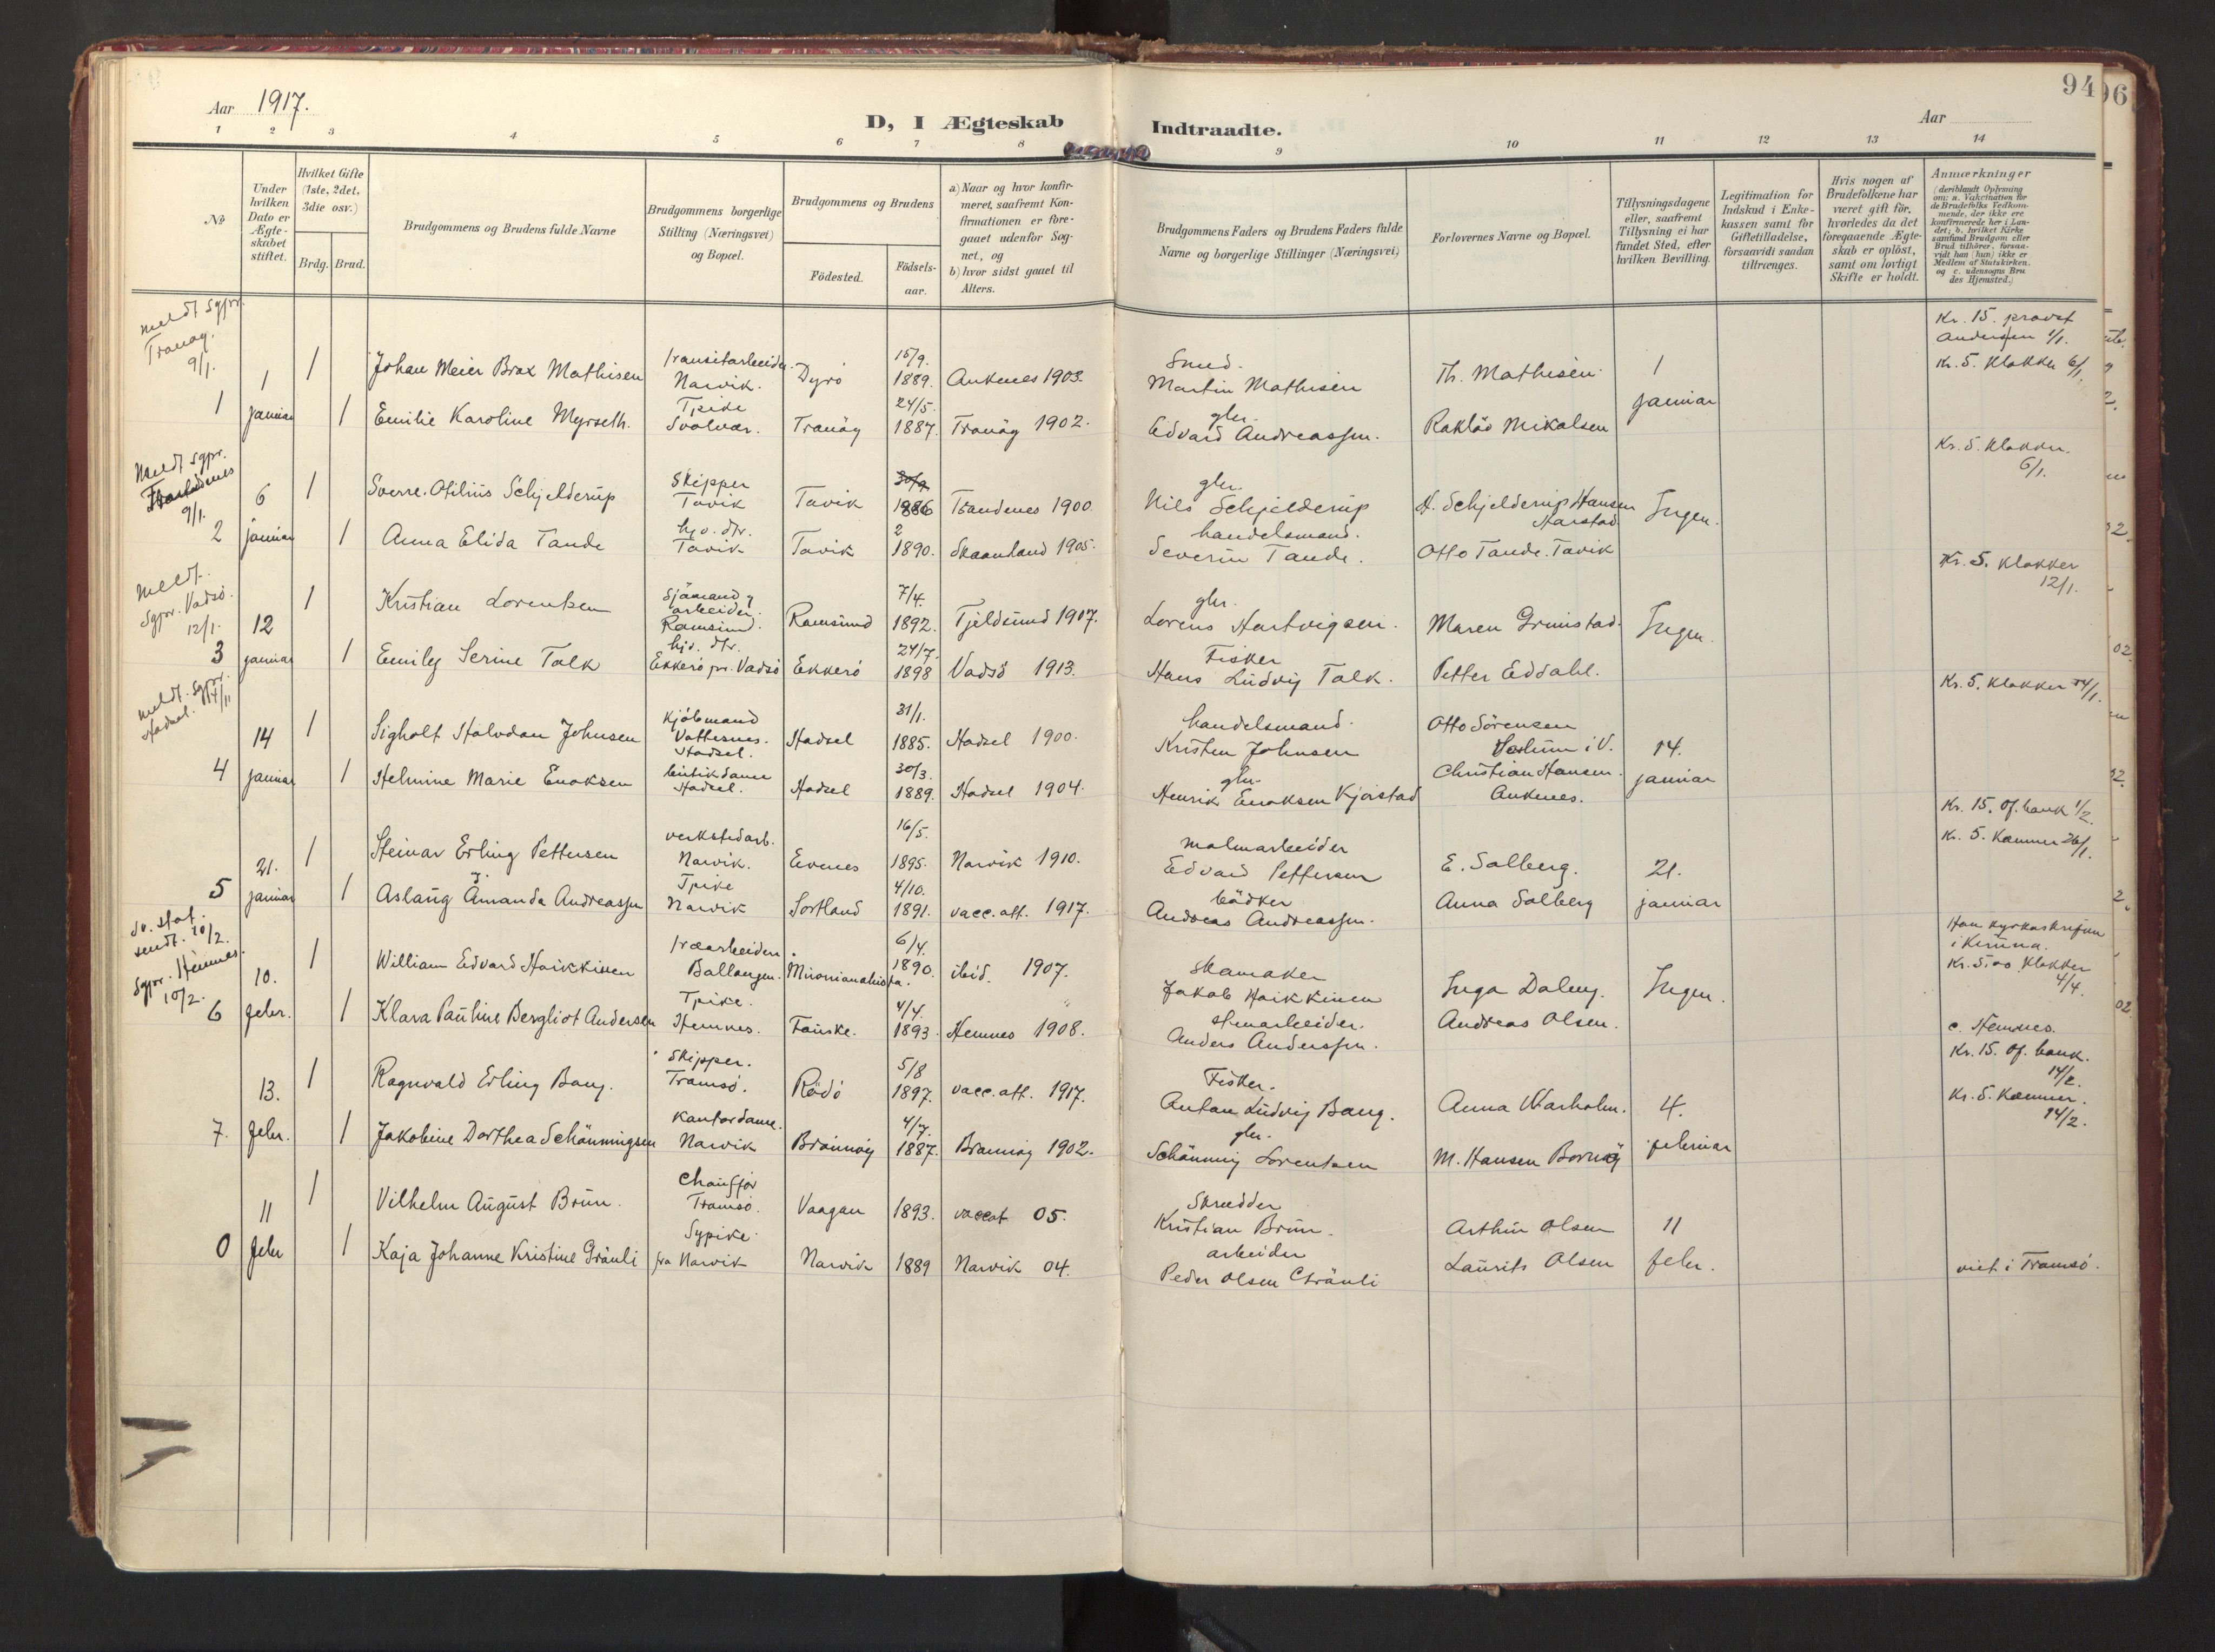 94
96
Aar 1917.
D, I Ægteskab Indtraadte.
Aar
1 2 3 4 5 6 7 8 9 10 11 12 13 14
No
Under hvilken Dato er Ægteskabet stiftet.
Hvilket Gifte (1ste, 2det, 3die osv.)
Brdg. Brud.
Brudgommens og Brudens fulde Navne
Brudgommens borgerlige Stilling (Næringsvei) og Bopæl.
Brudgommens og Brudens
Födested.
Födselsaar.
a) Naar og hvor konfirmeret, saafremt Konfirmationen er foregaaet udenfor Sognet, og
b) hvor sidst gaaet til Alters.
Brudgommens Faders og Brudens Faders fulde Navne og borgerlige Stillinger (Næringsvei)
Forlovernes Navne og Bopæl.
Tillysningsdagene eller, saafremt Tillysning ei har fundet Sted, efter hvilken Bevilling.
Legitimation for Indskud i Enkekassen samt for Giftetilladelse, forsaavidt saadan tiltrænges.
Hvis nogen af Brudefolkene har været gift för, hvorledes da det foregaaende Ægteskab er oplöst, samt om lovligt Skifte er holdt.
Anmærkninger
(deriblandt Oplysning om: a. Vakcination for de Brudefolks Vedkommende, der ikke ere konfirmerede her i Landet; b. hvilket Kirkesamfund Brudgom eller Brud tilhörer, forsaavidt han (hun) ikke er Medlem af Statskirken. og c. udensogns Brudes Hjemsted.)
meldt sgpr. Tranøy. 9/1.
Kr. 15. provst Andersen 1/1.
1 1 Johan Meier Brox Mathisen transitarbeider. Narvik. Dyrö 15/9. 1889. Ankenes 1903. Smed. Martin Mathisen Th. Mathisen. 1 Kr. 5. Klokker 6/1.
1 januar 1 Emilie Karoline Myrseth. Tpike Svolvær. Tranöy 24/5. 1887. Tranöy 1902. gbr. Edvard Andreassen. Mikalsen januar
Meldt sgpr. 9/1.
Kr. 5. Klokker. 6/1.
6 1 Sverre Otilius Schjelderup Skipper Tovik Tovik 1886 Trandenes 1900. gbr. Nils Schjelderup H. Schjelderup Hansen Harstad Ingen.
2 januar 1 Anna Elida Tande hjv. dtr. Tovik Tovik 2 1890. Skaanland 1905. handelsmand. Severin Tande. Otto Tande. Tovik
Meldt. Sgpr. Vadsö. 12/1.
Kr. 5. Klokker 12/1.
12 1 Kristian Lorentzen Sjömand og arbeider. Ramsund. Ramsund 7/4. 1892. Tjeldsund 1907. gbr. Lorens Hartvigsen. Maren Grimstad. Ingen.
3 januar 1 Emily Serine Talk hjv. dtr. Ekkerö pr. Vadsö Ekkerö 24/7. 1898 Vadsö 1913. Fisker Hans Ludvig Talk. Petter Eddahl.
meldt. Sgpr. Hadsel.
Kr. 5. Klokker 14/1.
14 1 Sigholt Halvdan Johnsen Kjöbmand Hadsel. Hadsel 31/1. 1885. Hadsel 1900. handelsmand. Kristen Johnsen Otto Sörensen i V. 14.
4 januar 1 Helmine Marie Enoksen butikdame Hadsel. Hadsel 30/3. 1889. Hadsel 1904. gbr. Henrik Enoksen Kjörstad Christian Hansen. Ankenes. januar
Kr. 15. Of. bank 1/2.
Kr. 5. Kæmner 26/1.
21. 1 Steinar Erling Pettersen verkstedarb. Narvik. Evenes 16/5. 1895. Narvik 1910. malmarbeider Edvard Pettersen E. Solberg. 21.
5 januar 1 Aslaug J. Amanda Andreassen Tpike Narvik Sortland 4/10. 1891. vacc. att. 1917. bödker Andreas Andreassen. Anna Solberg januar
sv. stat. sendt. 10/2.
Sgpr. Hemnes. 10/2.
Han kyrkoskrifven i Kiruna.
Kr. 5.00 Klokker 4/4.
10. 1 William Edvard Haikkinen træarbeider. Ballangen. 6/4. 1890. ibid. 1907. skomaker Jakob Haikkinen Inga Ingen.
6 febr. 1 Klara Pauline Bergliot Andersen Tpike. Hemnes. Fauske. 4/4. 1893. Hemnes 1908. stenarbeider. Anders Anderssen. Andreas Olsen. c. Hemnes.
Kr. 15. Of. bank. 14/2.
13. 1 Ragnvald Erling Bang. Skipper. Tromsö. Rödö 5/8 1897. vacc. att. 1917. Fisker. Anton Ludvig Bang. Anna Warholm. 4. Kr. 5. Kæmner. 14/2.
7. febr. 1 Jakobine Dorthea Schönningsen Kontordame. Narvik Brönnöy 4/7. 1887. Brönnöy 1902. gbr. Schönning Lorentzen M. Hansen februar
11 1 Vilhelm August Brun. Chauffør Tromsö. Vaagan 1893. vaccat 05. Skrædder Kristian Brun. Arthur Olsen 11
0 febr 1 Kaja Johanne Kristine Grönli Sypike. fra Narvik Narvik 1889 Narvik 04. arbeider Peder Olsen Grönli Laurits Olsen febr. viet i Tromsö.